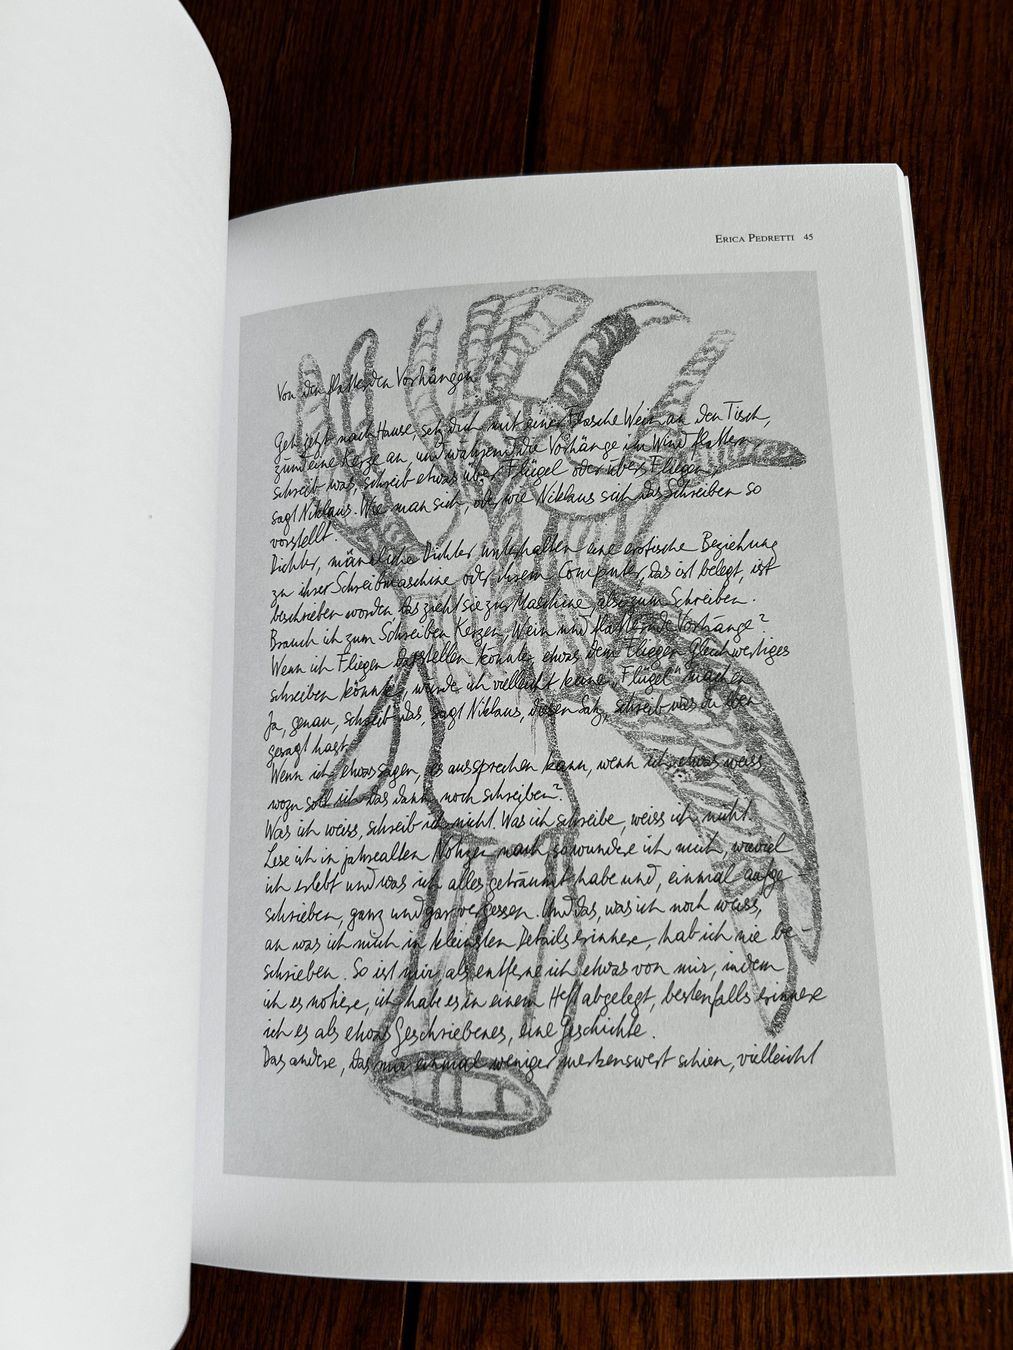 ERICA PEDRETTI 45
Von den flatternden Vorhängen
Geh jetzt nach Hause, setz dich mit einer Flasche Wein an den Tisch,
zünd eine Kerze an, und während die Vorhänge im Wind flattern
schreib was, schreib etwas über Flügel oder übers Fliegen,
sagt Niklaus. Wie man sich, oder wie Niklaus sich das Schreiben so
vorstellt.
Dichter, männliche Dichter unterhalten eine erotische Beziehung
zu ihrer Schreibmaschine oder ihrem Computer, das ist belegt, ist
beschrieben worden das zieht sie zur Maschine, also zum Schreiben.
Brauch ich zum Schreiben Kerzen, Wein und flatternde Vorhänge?
Wenn ich Fliegen darstellen könnte, etwas dem Fliegen gleichwertiges
schreiben könnte, würde ich vielleicht keine „Flügel" machen
Ja, genau, schreib das, sagt Niklaus, diesen Satz, schreib was du eben
gesagt hast.
Wenn ich etwas sagen, es aussprechen kann, wenn ich etwas weiss,
wozu soll ich das dann noch schreiben?
Was ich weiss, schreib ich nicht. Was ich schreibe, weiss ich nicht.
Lese ich in jahrealten Notizen nach, so wundere ich mich, wieviel
ich erlebt und was ich alles geträumt habe und, einmal aufge-
schrieben, ganz und gar vergessen. Und das, was ich noch weiss,
an was ich mich in kleinsten Details erinnere, hab ich nie be-
schrieben. So ist mir, als entferne ich etwas von mir, indem
ich es notiere, ich habe es in einem Heft abgelegt, bestenfalls erinnere
ich es als etwas Geschriebenes, eine Geschichte.
Das andere, das mir einmal weniger merkenswert schien, vielleicht